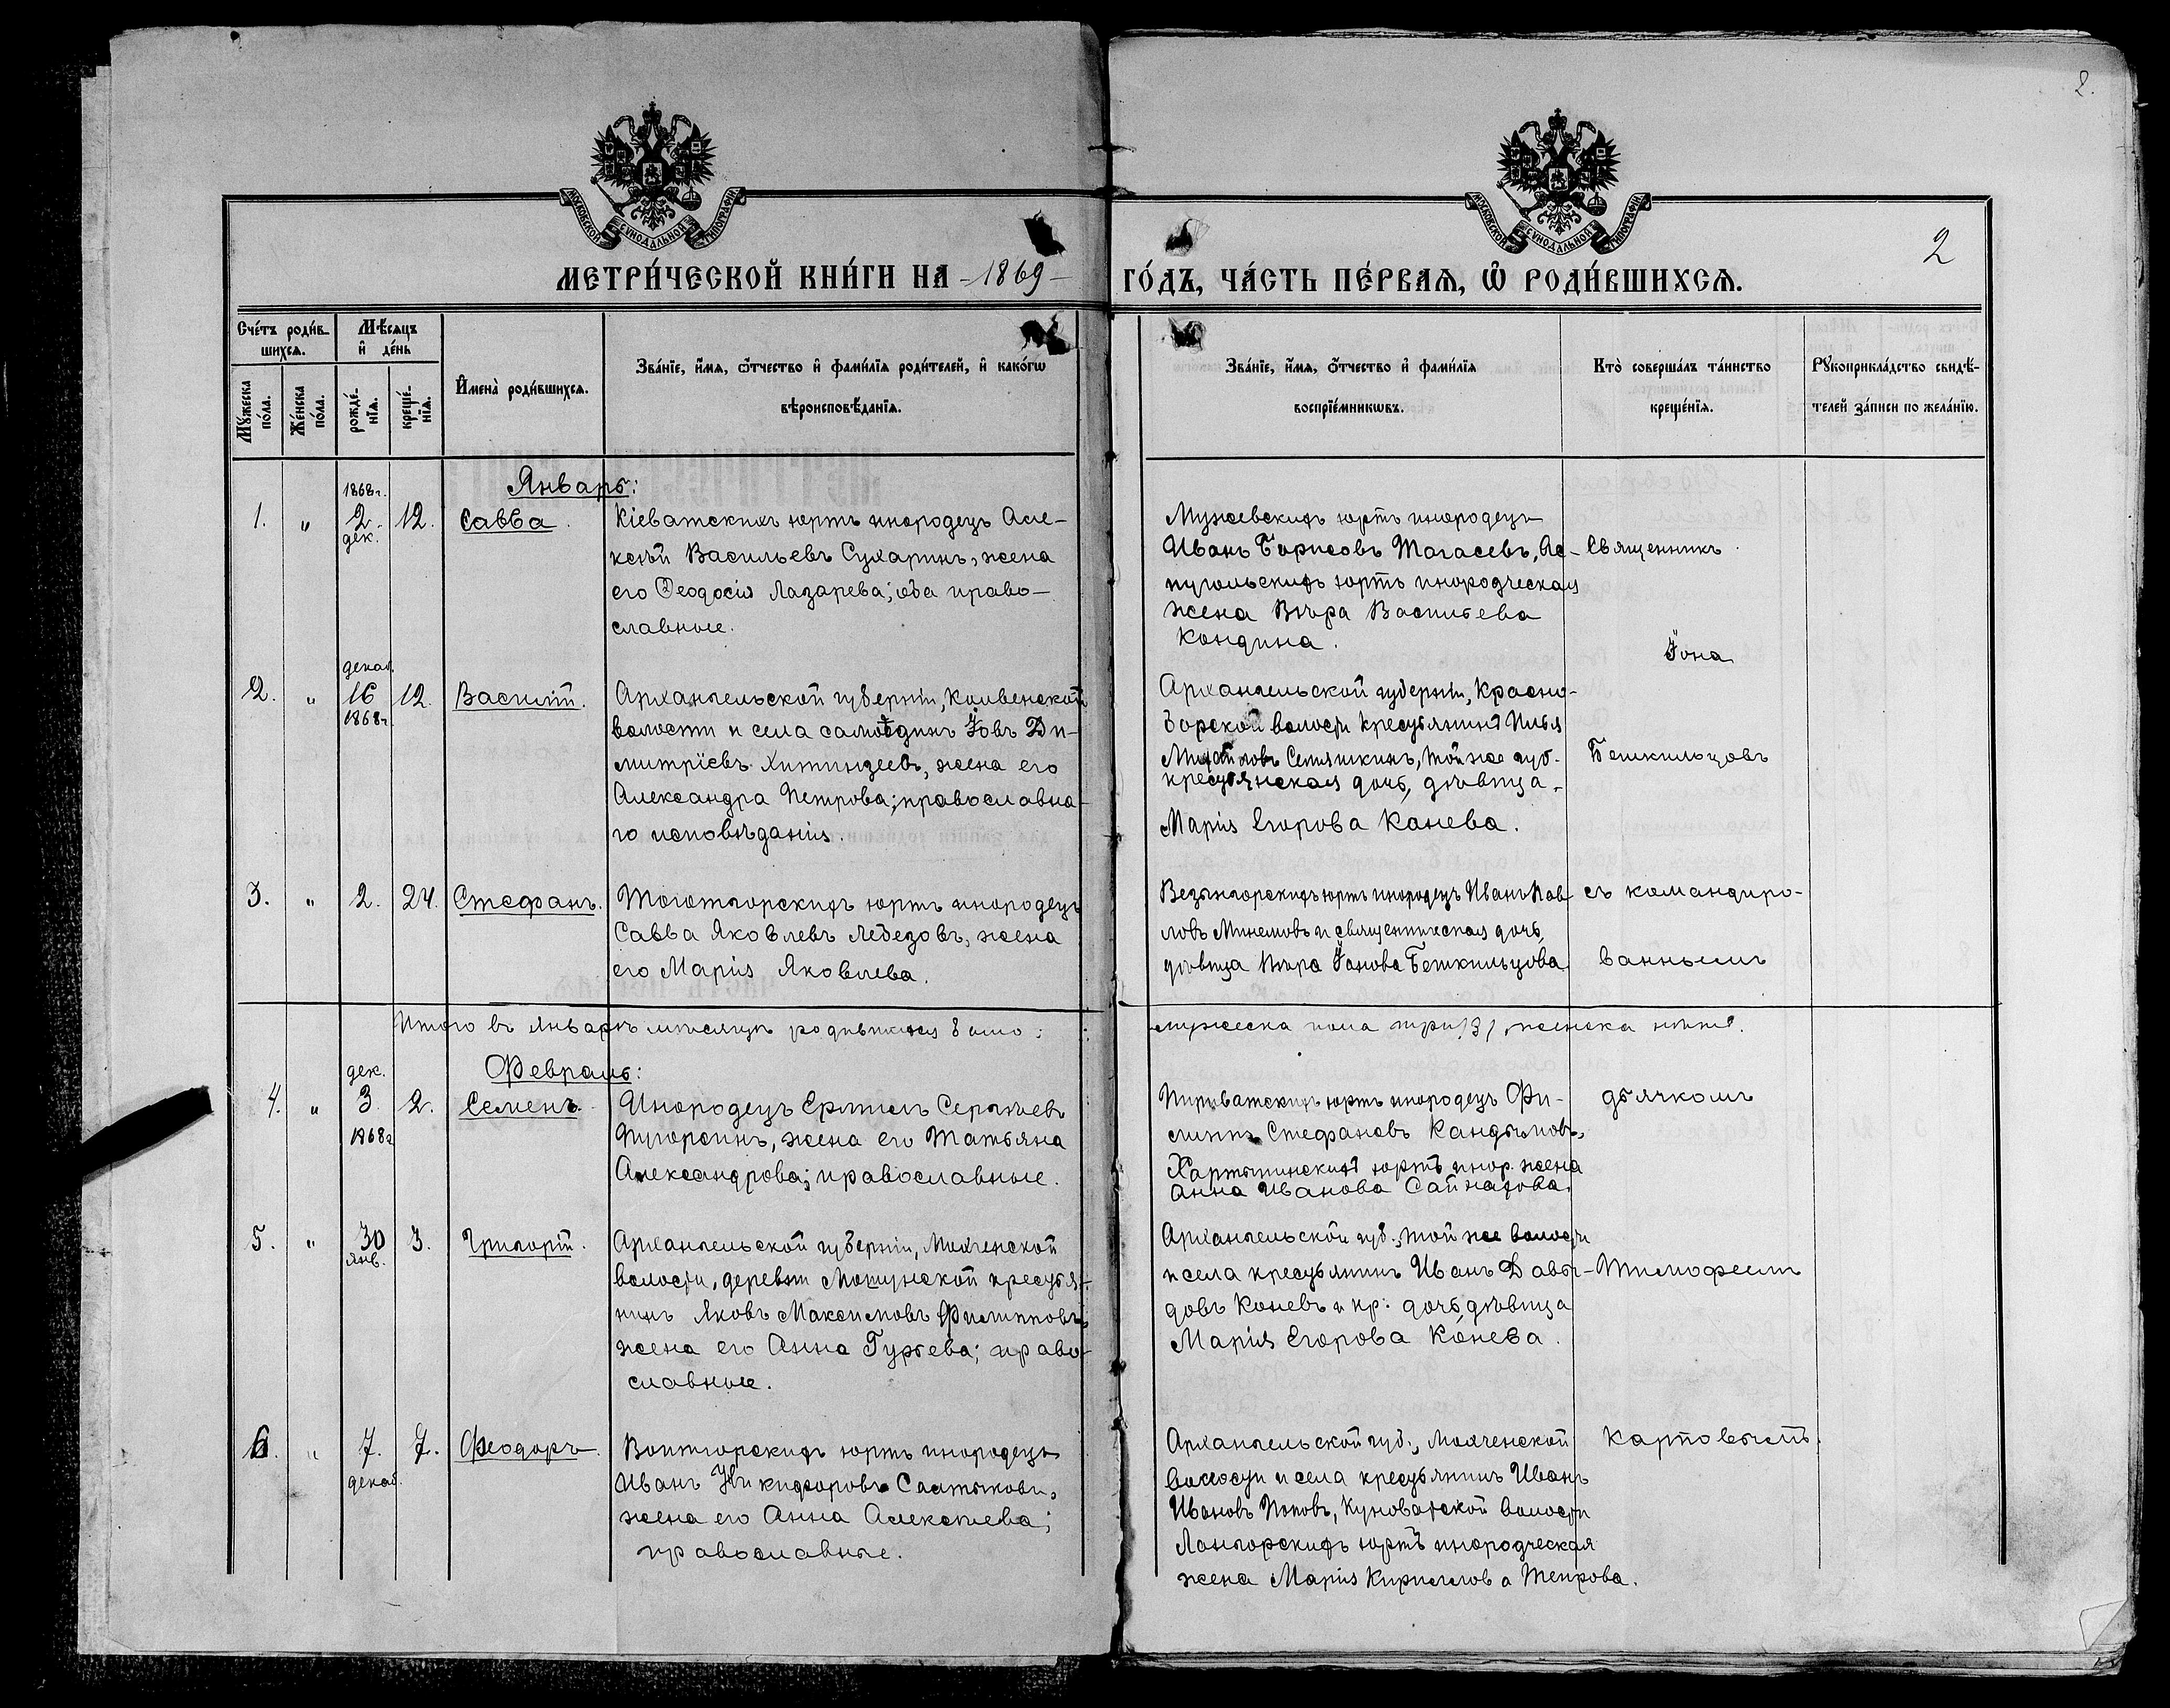 2.
МОСКОВСКОЙ СУНОДАЛЬНОЙ ТИПОГРАФІИ
МОСКОВСКОЙ СУНОДАЛЬНОЙ ТИПОГРАФІИ
2
МЕТРИ́ЧЕСКОЙ КНИ́ГИ НА -1869- ГО́ДЪ, ЧА́СТЬ ПЕ́РВАѦ, Ѽ РОДИ́ВШИХСѦ.
Сче́тъ роди́в-
шихсѧ.
Мѣ́сѧцъ
и҆ де́нь
Мꙋ́жеска
по́ла.
Же́нска
по́ла.
рожде́-
нїѧ.
креще́-
нїѧ.
И҆мена̀ роди́вшихсѧ.
Зва́нїе, и҆́мѧ, ѻ҆́тчество и҆ фами́лїѧ роди́телей, и҆ како́гѡ
вѣроисповѣ́данїѧ.
Зва́нїе, и҆́мѧ, ѻ҆́тчество и҆ фами́лїѧ
воспрїе́мникѡвъ.
Кто̀ соверша́лъ та́инство
креще́нїѧ.
Рꙋкоприкла́дство свидѣ́-
телей за́писи по жела́нїю.
Январь:
1. " 1868 г. 2. дек. 12. Савва.
Кіеватскихъ юртъ инородецъ Але-
ксѣй Васильевъ Сухаринъ, жена
его Ѳеодосія Лазарева; оба право-
славные.
Мужевскихъ юртъ инородецъ
Иванъ Борисовъ Тогасевъ, Ас-
пугольскихъ юртъ инородческая
жена Вѣра Васильева
Кондина.
Священникъ
Іона
2. " декаб. 16 1868 г. 12. Василій.
Архангельской губерніи, Колвенской
волости и села самоѣдинъ Іовъ Ди-
митріевъ Хатинзеевъ, жена его
Александра Петрова; православна-
го исповѣданія.
Архангельской губерніи, Красно-
борской волости крестьянинъ Илья
Михайловъ Семяшкинъ, той же губ.
крестьянская дочь, дѣвица
Марія Егорова Канева.
Бешкильцовъ
3. " 2. 24. Стефанъ.
Тоготгорскихъ юртъ инородецъ
Савва Яковлевъ Лебезовъ, жена
его Марія Яковлева.
Везынгорскихъ юртъ инородецъ Иванъ Пав-
ловъ Минемовъ и священническая дочь,
дѣвица Вѣра Іонова Бешкильцова
съ командиро-
ваннымъ
Итого въ Январѣ мѣсяцѣ родившихся было: мужеска пола три /3/, женска нѣтъ.
Февраль:
4. " дек. 3 1868 г 2. Семенъ.
Инородецъ Ермилъ Сергѣевъ
Пугорсинъ, жена его Татьяна
Александрова; православные.
юртъ инородецъ Фи-
липпъ Стефановъ Кандымовъ,
юртъ инор. жена
Анна Иванова
дьячкомъ
5. " 30 янв. 3. Григорій.
Архангельской губерніи, Мохченской
волости, деревни Мошунской крестья-
нинъ Яковъ Максимовъ Филипповъ,
жена его Анна Гурьева; право-
славные.
Архангельской губ., той же волости
и села крестьянинъ Иванъ Давы-
довъ Коневъ и кр. дочь, дѣвица
Марія Егорова Конева.
Тимофеемъ
6. " 7. декаб. 7. Феодоръ.
Войтгорскихъ юртъ инородецъ
Иванъ Никифоровъ Салтыковъ,
жена его Анна Алексѣева;
православные.
Архангельской губ., Мохченской
волости и села крестьянинъ Иванъ
Ивановъ Поповъ, Куноватской волости
Лангорскихъ юртъ инородческая
жена Марія Кириллова Тепрова.
Карповымъ.